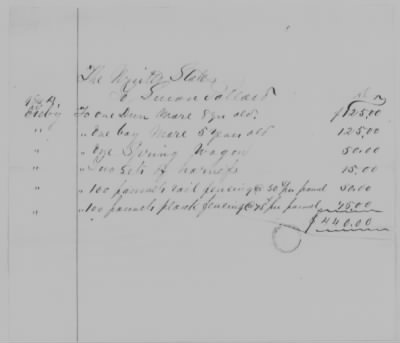 The United States
To Susan Pollard
To one Dun Mare 8 yr old. $125.00
" " One bay Mare 5 years old 125.00
" " One Spring Wagon 50.00
" " Two Sets of harness 15.00
" " 100 pannels rail fencing @ 50¢ per pannel 50.00
" " 100 pannels plank fencing @ 75¢ per pannel 75.00
$440.00